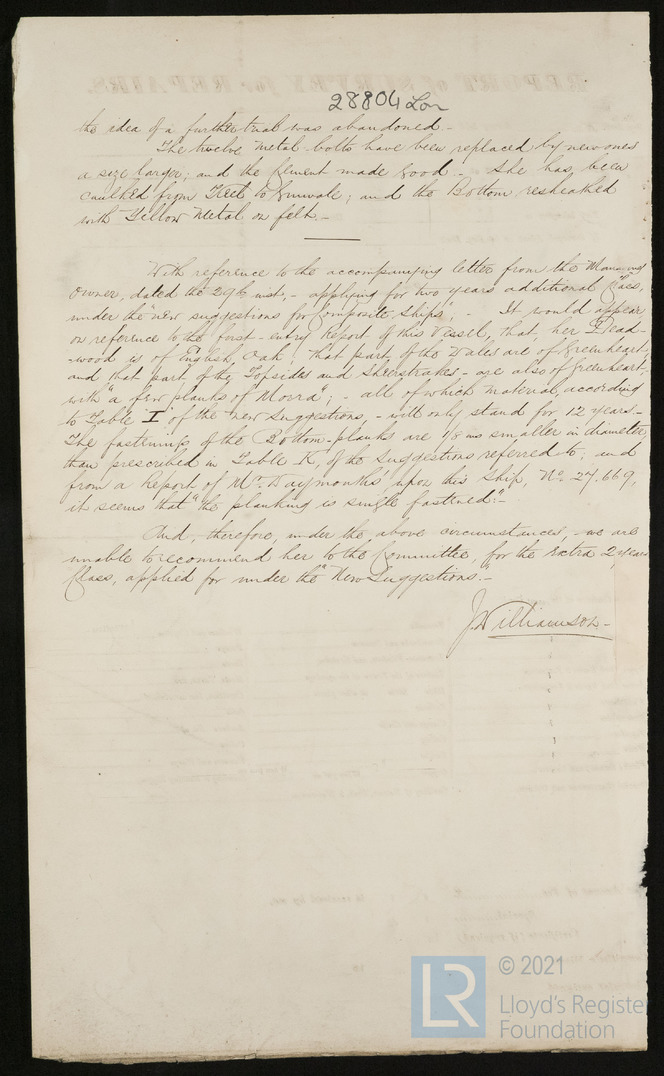 REPORT of SURVEY for REPAIRS.
28804 Lon
the idea of a further trial was abandoned –
The twelve metal bolts have been replaced by new ones
a size larger; and the Cement made good – She has been
caulked from Keel to Gunwale; and the Bottom resheathed
with Yellow Metal on felt –
With reference to the accompanying letter from the Managing
Owner, dated the 29th inst, – applying for two years additional Class,
under the "new suggestions for Composite Ships", – It would appear
on reference to the first-entry Report of this Vessel, that, her Dead-
-wood is of English Oak; that part of the Wales are of Greenheart,
and that part of the Topsides and Sheerstrakes – are also of Greenheart,
with "a few planks of Mora"; – all of which material, according
to Table I of the new Suggestions, – will only stand for 12 years –
The fastenings of the Bottom-planks are 1/8 ins smaller in diameter,
than prescribed in Table K, of the Suggestions referred to; and
from a report of Mr. Waymouth's upon this Ship, No. 27.669,
it seems that "the planking is single fastened" –
And, therefore, under the above circumstances, – we are
unable to recommend her to the Committee, for the Extra 2 years
Class, applied for under the "New Suggestions. –
J. Williamson –
LR
© 2021
Lloyd's Register
Foundation